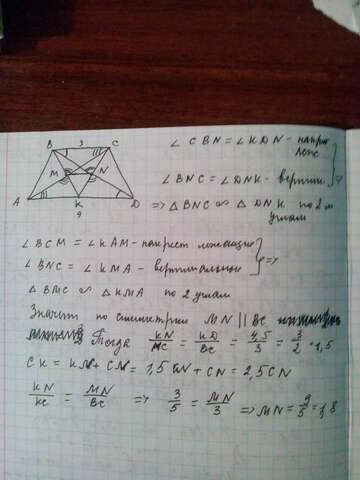 B 3 C
M N
A K D
9
∠CBN = ∠KDN - накрест
леж
∠BNC = ∠DNK - вертик
=> △BNC ∾ △DNK по 2м
углам
∠BCM = ∠KAM - накрест лежащие
∠BNC = ∠KMA - вертикальные =>
△BMC ∾ △KMA по 2 углам
Значит по симметрии MN || BC
Тогда KN/NC = KD/BC = 4,5/3 = 3/2 = 1,5
CK = KN + CN = 1,5 CN + CN = 2,5 CN
KN/KC = MN/BC => 3/5 = MN/3 => MN = 9/5 = 1,8